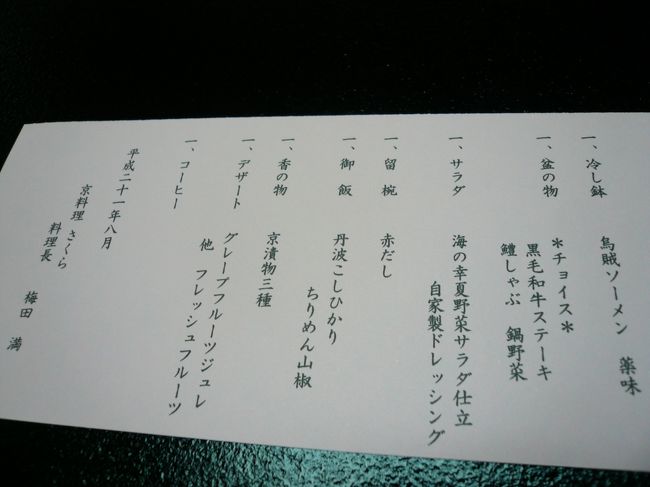 一、冷し鉢
烏賊ソーメン 薬味
一、盆の物
＊チョイス＊
黒毛和牛ステーキ
鱧しゃぶ 鍋野菜
一、サラダ
海の幸夏野菜サラダ仕立
自家製ドレッシング
一、留椀
赤だし
一、御飯
丹波こしひかり
ちりめん山椒
一、香の物
京漬物三種
一、デザート
グレープフルーツジュレ
他 フレッシュフルーツ
一、コーヒー
平成二十一年八月
京料理 さくら
料理長 梅田 満